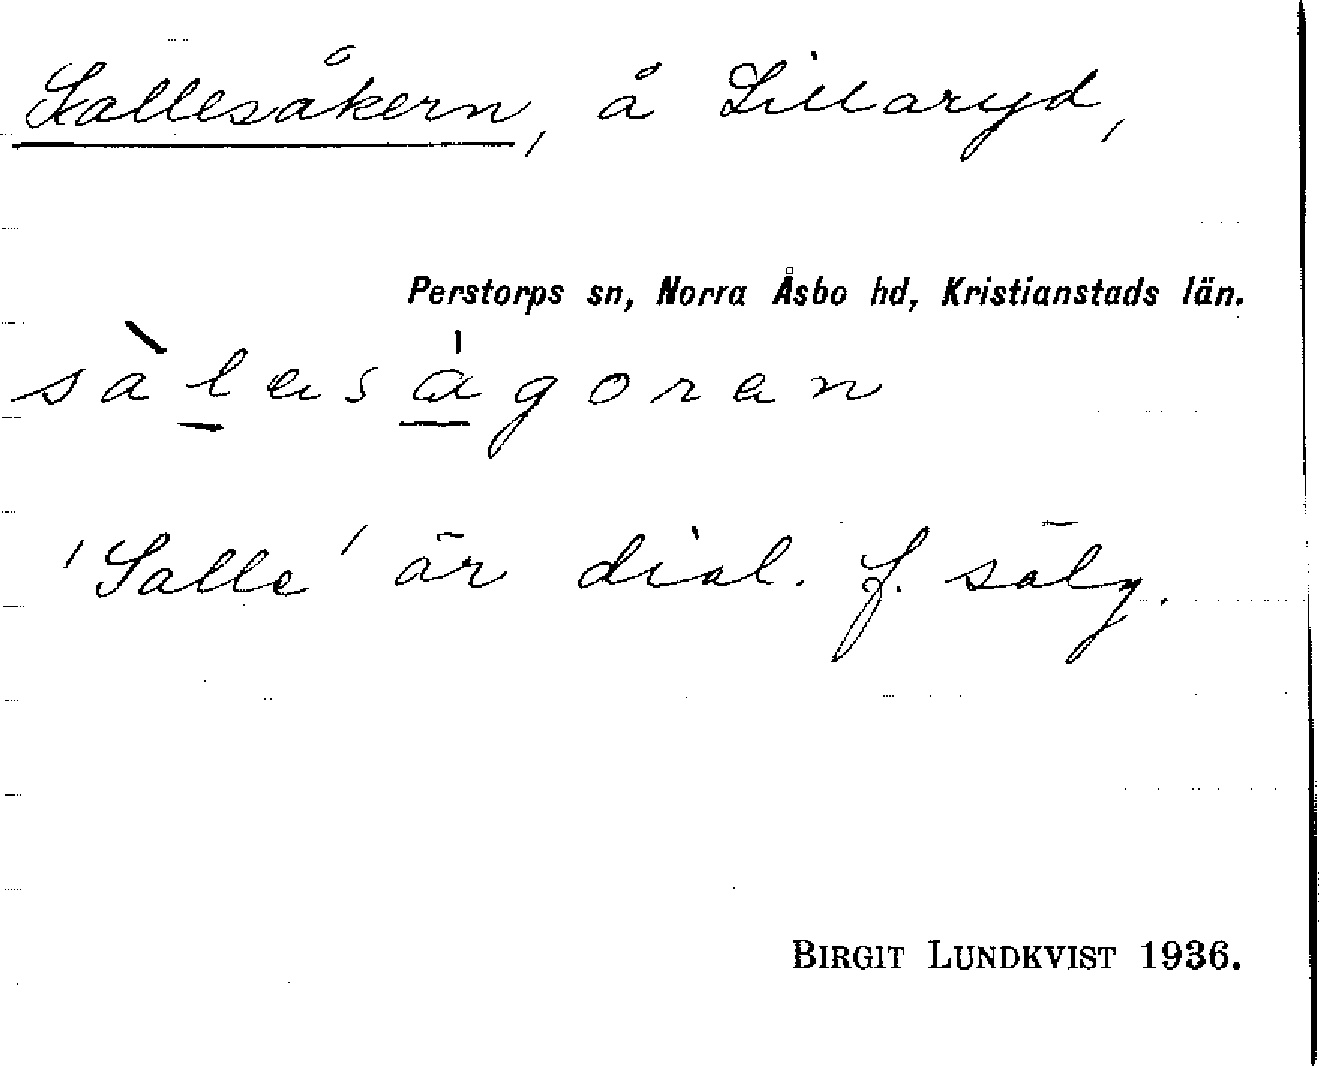 Sallesåkern, å Lillaryd,
Perstorps sn, Norra Åsbo hd, Kristianstads län.
sàleságoran
'Salle' är dial. f. sälg.
BIRGIT LUNDKVIST 1936.